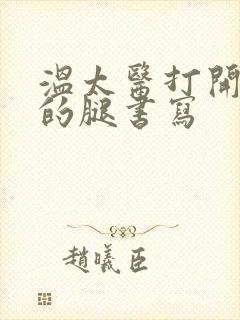 溫太醫打開
的腿書寫
趙曦臣